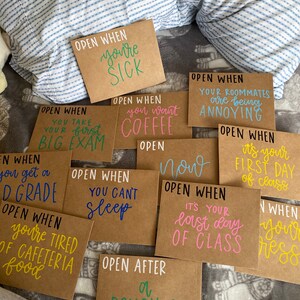 OPEN WHEN
you're
SICK
OPEN WHEN
YOUR ROOMMATES
are being
ANNOYING
OPEN WHEN
you want
COFFEE
OPEN WHEN
YOU TAKE
YOUR first
BIG EXAM
OPEN WHEN
it's your
FIRST DAY
of class
OPEN
NOW
WHEN
you get a
D GRADE
OPEN WHEN
YOU CAN'T
sleep
OPEN WHEN
ITS YOUR
last day
OF CLASS
OPEN WHEN
you're TIRED
OF CAFETERIA
food
WHEN
OPEN AFTER
a